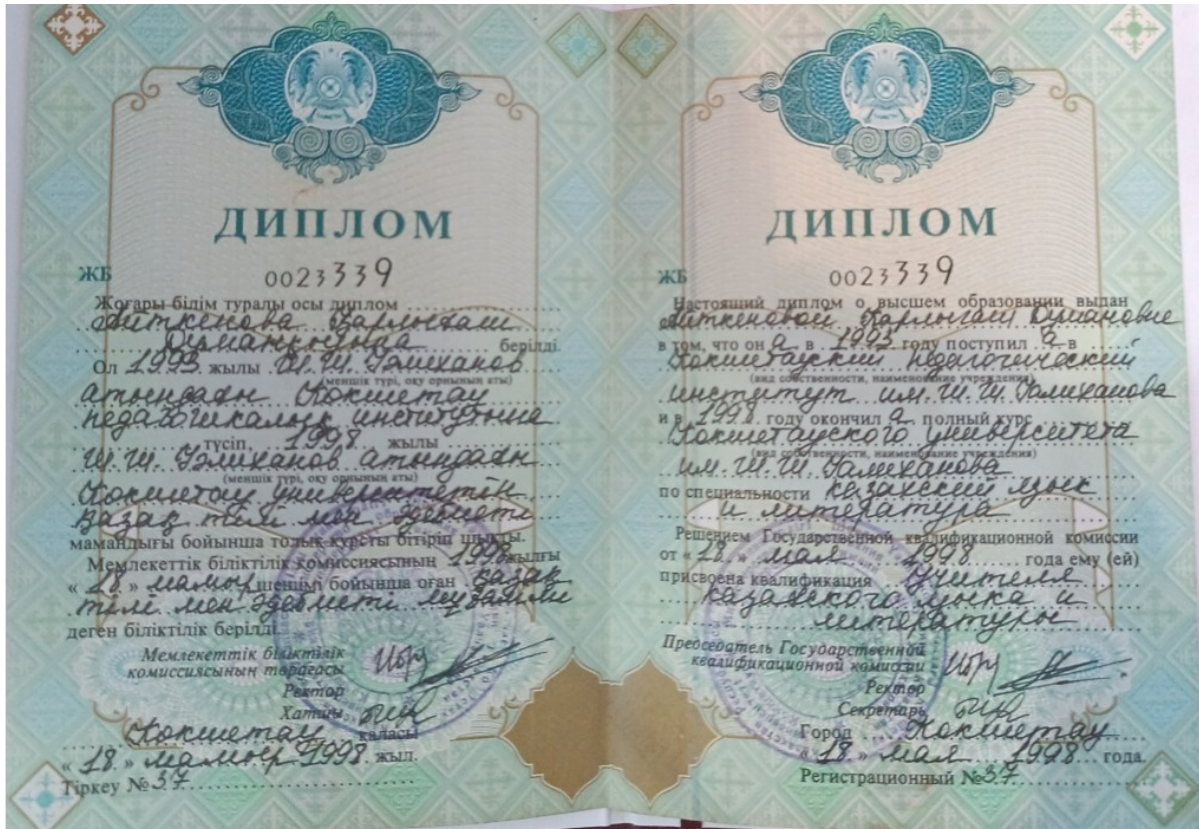 ДИПЛОМ
ЖБ 0023339
Жоғары білім туралы осы диплом
Айткенова Қарлығаш
берілді.
Ол 1993 жылы Ш.Ш. Уәлиханов
(меншік түрі, оқу орнының аты)
атындағы Көкшетау
педагогикалық институтына
түсіп, 1998 жылы
Ш.Ш. Уәлиханов атындағы
(меншік түрі, оқу орнының аты)
Көкшетау университетін
қазақ тілі мен әдебиеті
мамандығы бойынша толық курсты бітіріп шықты.
Мемлекеттік біліктілік комиссиясының 1998 жылғы
« 18 » мамыр шешімі бойынша оған қазақ
тілі мен әдебиеті мұғалімі
деген біліктілік берілді.
Мемлекеттік біліктілік
комиссиясының төрағасы
Ректор
Хатшы
Көкшетау қаласы
« 18 » мамыр 1998 жыл.
Тіркеу № 37
ДИПЛОМ
ЖБ 0023339
Настоящий диплом о высшем образовании выдан
Айткеновой Карлыгаш
в том, что он а в 1993 году поступил а в
Кокшетауский педагогический
(вид собственности, наименование учреждения)
институт им. Ш.Ш. Уалиханова
и в 1998 году окончил а полный курс
Кокшетауского университета
(вид собственности, наименование учреждения)
им. Ш.Ш. Уалиханова
по специальности казахский язык
и литература
Решением Государственной квалификационной комиссии
от « 18 » мая 1998 года ему (ей)
присвоена квалификация Учителя
казахского языка и
литературы
Председатель Государственной
квалификационной комиссии
Ректор
Секретарь
Город Кокшетау
« 18 » мая 1998 года.
Регистрационный № 37